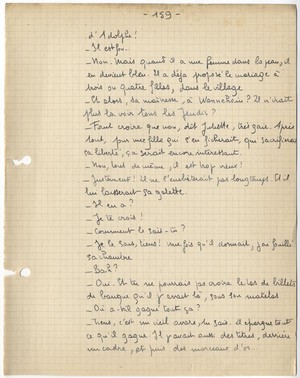 - 159 -
d'Adolphe !
- Il est fou..
- Non. Mais quand il a une femme dans la peau, il
en devient bleu. Il a déjà proposé le mariage à
trois ou quatre filles, dans le village
- Et alors, sa maîtresse, à Wannehain ? Il n'irait
plus la voir tous les jeudis ?
- Faut croire que non, dit Juliette, très gaie. Après
tout, pour une fille qui s'en ficherait, qui sacrifierait
sa liberté, ça serait encore intéressant.
- Non, tout de même, il est trop vieux !
- Justement ! Il ne l'embêterait pas longtemps. Et il
lui laisserait sa galette.
- Il en a ?
- Je te crois !
- Comment le sais-tu ?
- Je le sais, tiens ! Une fois qu'il dormait, j'ai fouillé
sa chambre
- Bah ?
- Oui. Et tu ne pourrais pas croire le tas de billets
de banque qu'il y avait là, sous son matelas
- Où a-t-il gagné tout ça ?
- Tiens, c'est un vieil avare, tu sais. Il épargne tout
ce qu'il gagne. Il y avait aussi des titres, derrière
un cadre, et puis des morceaux d'or..